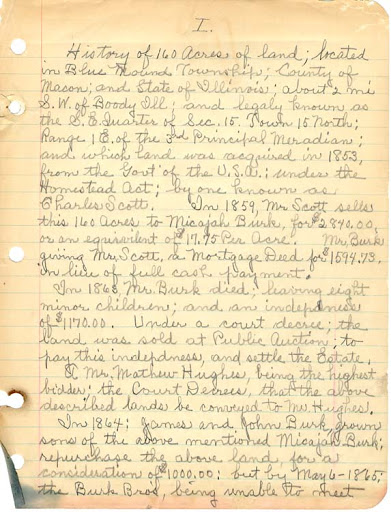 I.
History of 160 Acres of land; located
in Blue Mound Township; County of
Macon; and State of Illinois; about 2 mi
S.W. of Boody Ill; and legaly known as
the S.E. Quarter of Sec. 15. Town 15 North;
Range 1 E. of the 3rd Principal Meradian;
and which land was acquired in 1853,
from the Gov't of the U.S.A.; under the
Homestead Act; by one known as
Charles Scott. In 1859, Mr. Scott sells
this 160 Acres to Micajah Burk, for $2840.00
or an equivolent of $17.75 Per Acre. Mr. Burk
giving Mr. Scott, a Mortgage Deed for $1594.73.
In lieu of full cash payment.
In 1863 Mr. Burk died; leaving eight
minor children; and an indepdness
of $1170.00. Under a court decree; the
land was sold at Public Auction; to
pay this indepdness, and settle the Estate.
Mr. Mathew Hughes, being the highest
bidder; the Court Decrees, that the above
described lands be conveyed to Mr. Hughes.
In 1864; James and John Burk, grown
sons of the above mentioned Micajah Burk;
repurchase the above land, for a
consideration of $1000.00; but by May 6-1865,
the Burk Bros, being unable to meet